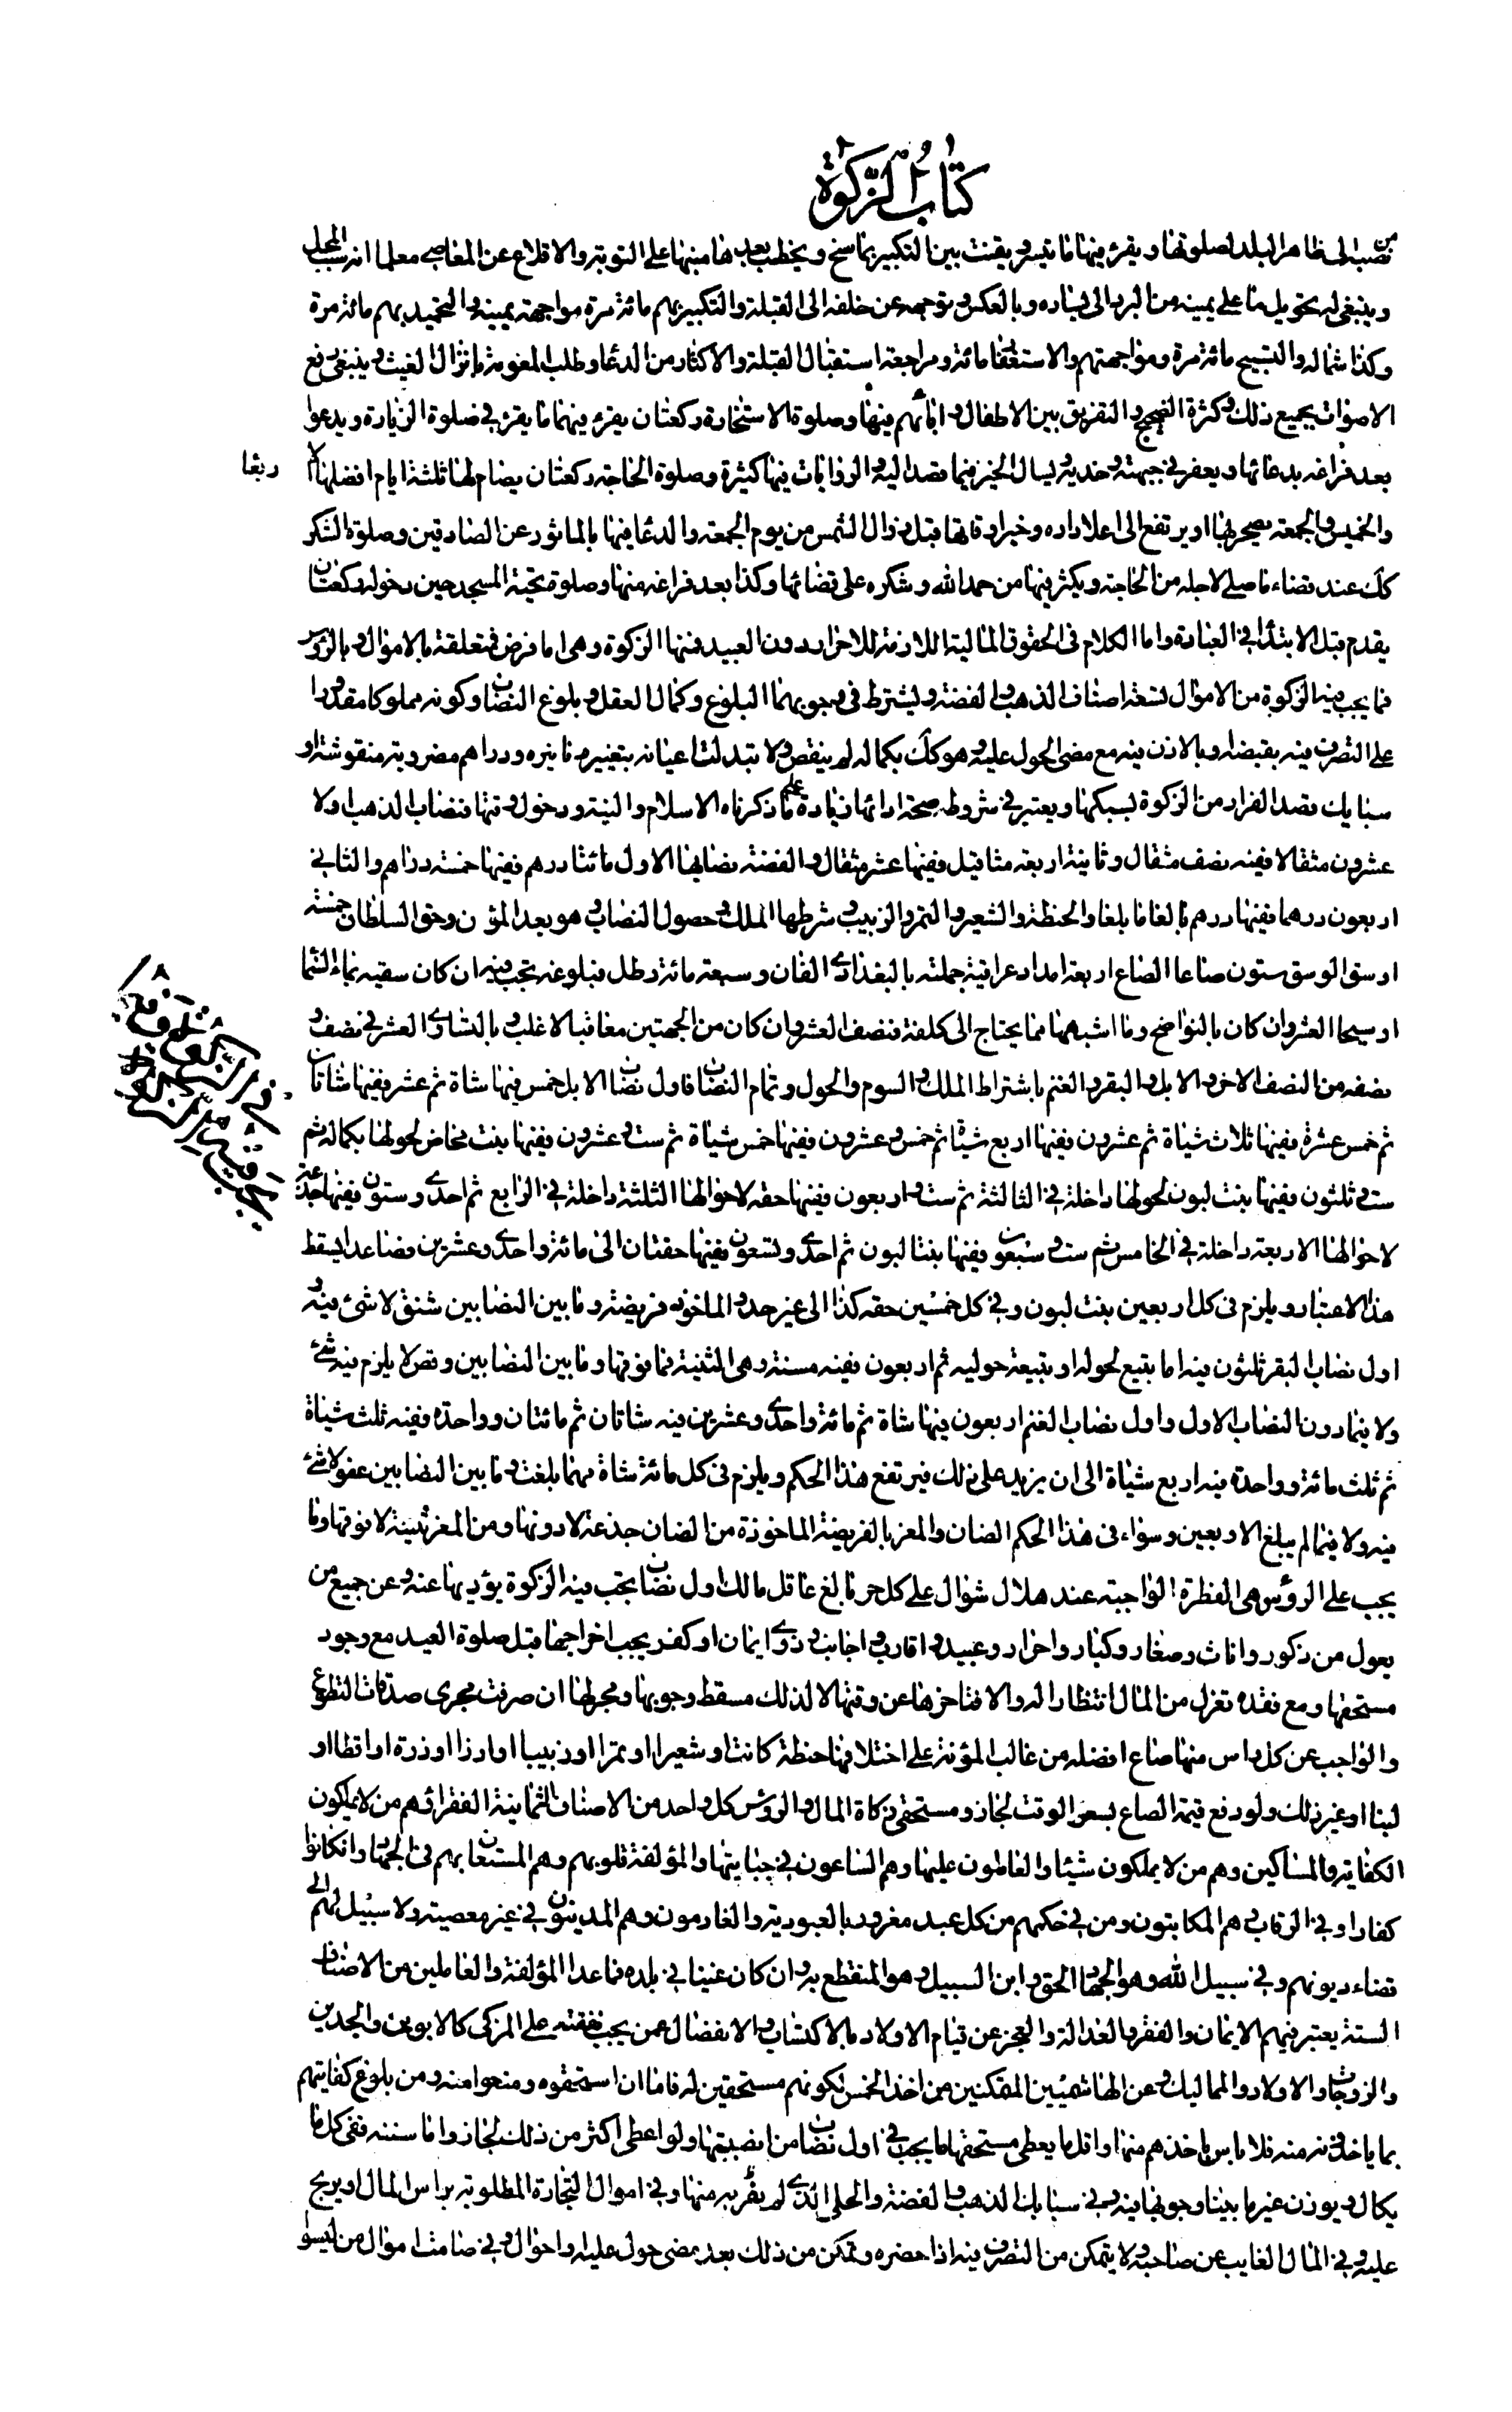 كتاب الزكوة
من نصبه الى ظاهر البلد لصلوتها ويقرء فيها ما تيسر ويقنت بين التكبير بما سنح ويخطب بعدها منبها على التوبة والاقلاع عن المعاصي معلما انه سبب المحل
وينبغي له تحويل ما على يمينه من البرد الى يساره وبالعكس وتوجهه عن خلفه الى القبلة والتكبير بهم مائة مرة مواجهة يمينه والتحميد بهم مائة مرة
وكذا شماله والتسبيح مائة مرة ومواجهتهم والاستغفار مائة ومراجعة استقبال القبلة والاكثار من الدعا وطلب المغوثة بانزال الغيث وينبغي رفع
الاصوات بجميع ذلك وكثرة الضجيج والتفريق بين الاطفال وابائهم فيها وصلوة الاستخارة ركعتان يقرء فيهما ما يقرء في صلوة الزيارة ويدعوا
بعد فراغه بدعائها ويعفر في جبهته وخديه ويسال الخيرة فيما قصد اليه والروايات فيها كثيرة وصلوة الحاجة ركعتان يصام لها ثلثة ايام افضلها الا ربعا
والخميس والجمعة يصحر لها او يرتفع الى اعلا داره وخير اوقاتها قبل زوال الشمس من يوم الجمعة والدعا فيها بالماثور عن الصادقين وصلوة الشكر
كك عند قضاء ما صلى لاجله من الحاجة ويكثر فيها من حمد الله وشكره على قضائها وكذا بعد فراغه منها وصلوة تحية المسجد حين دخوله ركعتان
يقدم قبل الابتدا في العبادة واما الكلام في الحقوق المالية اللازمة للاحرار دون العبيد فمنها الزكوة وهي اما فرض متعلقة بالاموال وبالرؤس
فما يجب فيه الزكوة من الاموال تسعة اصناف الذهب والفضة ويشترط في وجوبهما البلوغ وكمال العقل وبلوغ النصاب وكونه مملوكا مقدورا
على التصرف فيه بقبضه او بالاذن فيه مع مضى الحول عليه وهو كك بكماله لم ينقص ولا تبدلت اعيانه بتغيير دنانيره ودراهم مضروبة منقوشة او
سبايك قصد الفرار من الزكوة بسبكها ويعتبر في شروط صحة ادائها زيادة على ما ذكرناه الاسلام والنية ودخول وقتها فنصاب الذهب اولا
عشرون مثقالا ففيه نصف مثقال وثانية اربعة مثاقيل ففيها عشر مثقال والفضة نصابها الاول مائتا درهم ففيها خمسة دراهم والثاني
اربعون درهما ففيها درهم بالغا ما بلغا والحنطة والشعير والتمر والزبيب وشرطها الملك وحصول النصاب وهو بعد المؤن وحق السلطان خمسة
اوسق الوسق ستون صاعا الصاع اربعة امداد عراقية جملته بالبغدادي الفان وسبعة مائة رطل فبلوغه تجب فيه ان كان سقيه بماء السما
او سيحا العشر وان كان بالنواضح وما اشبهها مما يحتاج الى كلفة فنصف العشر وان كان من الجهتين معا فبالاغلب وبالتساوي العشر في نصف و
نصفه من النصف الاخر والابل والبقر والغنم باشتراط الملك والسوم والحول وتمام النصاب فاول نصاب الابل خمس فيها شاة ثم عشر ففيها شاتان
ثم خمس عشرة ففيها ثلاث شياة ثم عشرون ففيها اربع شياة ثم خمس وعشرون ففيها خمس شياة ثم ست وعشرون ففيها بنت مخاض لحولها بكماله ثم
ست وثلثون ففيها بنت لبون لحولها داخلة في الثالثة ثم ست واربعون ففيها حقه لاحوالها الثلثة داخلة في الرابع ثم احدى وستون ففيها جذعة
لاحوالها الاربعة داخلة في الخامس ثم ست وسبعون ففيها بنتا لبون ثم احدى وتسعون ففيها حقتان الى مائة واحدى وعشرين فصاعدا يسقط
هذا الاعتبار ويلزم في كل اربعين بنت لبون وفي كل خمسين حقه كذا الى غير حد والماخوذ فريضة وما بين النصابين شنق لا شئ فيه و
اول نصاب البقر ثلثون فيه اما تبيع لحوله او تبيعة حوليه ثم اربعون ففيه مسنة وهي الثنية فما فوقها وما بين النصابين وقص لا يلزم فيه شئ
ولا فيما دون النصاب الاول واول نصاب الغنم اربعون فيها شاة ثم مائة واحدى وعشرين فيه شاتان ثم مائتان وواحدة ففيه ثلث شياة
ثم ثلث مائة وواحدة فيه اربع شياة الى ان يزيد على ذلك فيرتفع هذا الحكم ويلزم في كل مائة شاة مهما بلغت وما بين النصابين عفو لا شئ
فيه ولا فيما لم يبلغ الاربعين وسواء في هذا الحكم الضان والمعز بالفريضة الماخوذة من الضان جذعة لا دونها ومن المعز ثنية لا فوقها وما
يجب على الرؤس هي الفطرة الواجبة عند هلال شوال على كل حر بالغ عاقل مالك اول نصاب تجب فيه الزكوة يؤديها عنه وعن جميع من
يعول من ذكور واناث وصغار وكبار واحرار وعبيد واقارب واجانب وذى ايمان او كفر يجب اخراجها قبل صلوة العيد مع وجود
مستحقها ومع فقده تعزل من المال انتظارا له والا فتاخرها عن وقتها لا لذلك مسقط وجوبها ومجر لها ان صرفت مجرى صدقات التطوع
والواجب عن كل راس منها صاع افضله من غالب المؤنة على اختلافها حنطة كانت او شعيرا او تمرا او زبيبا او ارزا او ذرة او اقطا او
لبنا او غير ذلك ولو دفع قيمة الصاع بسعر الوقت لجاز ومستحق زكاة المال والرؤس كل واحد من الاصناف الثمانية الفقراء وهم من لا يملكون
الكفاية والمساكين وهم من لا يملكون شيئا والعاملون عليها وهم الساعون في جبايتها والمؤلفة قلوبهم وهم المستعان بهم في الجهاد وانكانوا
كفارا وفي الرقاب هم المكاتبون ومن في حكمهم من كل عبد مغرور بالعبودية والغارمون وهم المدينون في غير معصية ولا سبيل لهم الى
قضاء ديونهم وفي سبيل الله وهو الجهاد الحق وابن السبيل وهو المنقطع به وان كان غنيا في بلده فما عدا المؤلفة والعاملين من الاصناف
الستة يعتبر فيهم الايمان والفقر والعدالة والعجز عن قيام الاولاد بالاكتساب والانفصال عمن يجب نفقته على المزكى كالابوين والجدين
والزوجات والاولاد والمماليك وعن الهاشميين المتمكنين من اخذ الخمس لكونهم مستحقين له فاما ان استحقوه ومنعوا منه ومن بلوغ كفايتهم
بما ياخذونه منه فلا باس باخذهم منها واقل ما يعطى مستحقها ما يجب في اول نصاب من انصبتها ولو اعطى اكثر من ذلك لجاز واما سننه ففي كل ما
يكال ويوزن غير ما بينا وجوبها فيه وفي سبايك الذهب والفضة والحلى الذى لم يفر به منها وفي اموال التجارة المطلوبة براس المال او بربح
عليه وفي المال الغايب عن صاحبه ولا يتمكن من التصرف فيه اذا حضره وتمكن من ذلك بعد مضى حول عليه واحوال وفي صامت اموال من ليسوا